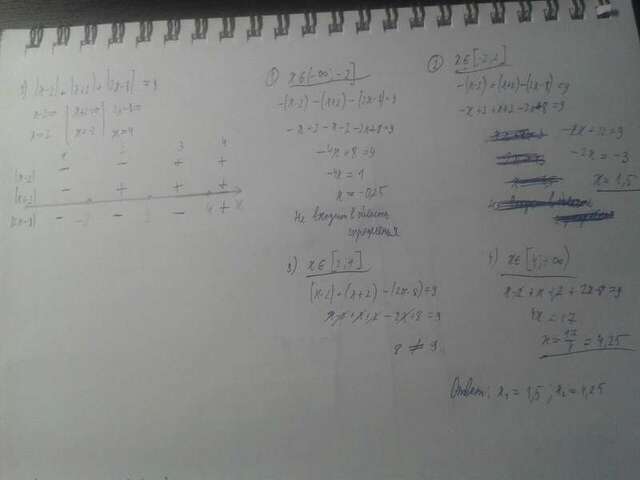 1) |x-2|+|x+2|+|2x-8|=9
x-2=0 | x+2=0 | 2x-8=0
x=2 | x=-2 | x=4
1 2 3 4
|x-2| - - + +
|x+2| - + + +
|2x-8| - -2 - 2 - 4 + x
① x∈(-∞;-2]
-(x-2)-(x+2)-(2x-8)=9
-x+2-x-2-2x+8=9
-4x+8=9
-4x=1
x=-0,25
Не входит в область
определения
② x∈[-2;2]
-(x-2)+(x+2)-(2x-8)=9
-x+2+x+2-2x+8=9
-2x+12=9
-2x=-3
x=1,5
3) x∈[2;4]
(x-2)+(x+2)-(2x-8)=9
x-2+x+2-2x+8=9
8≠9
4) x∈[4;+∞)
x-2+x+2+2x-8=9
4x=17
x=17/4=4,25
Ответ: x₁=1,5; x₂=4,25